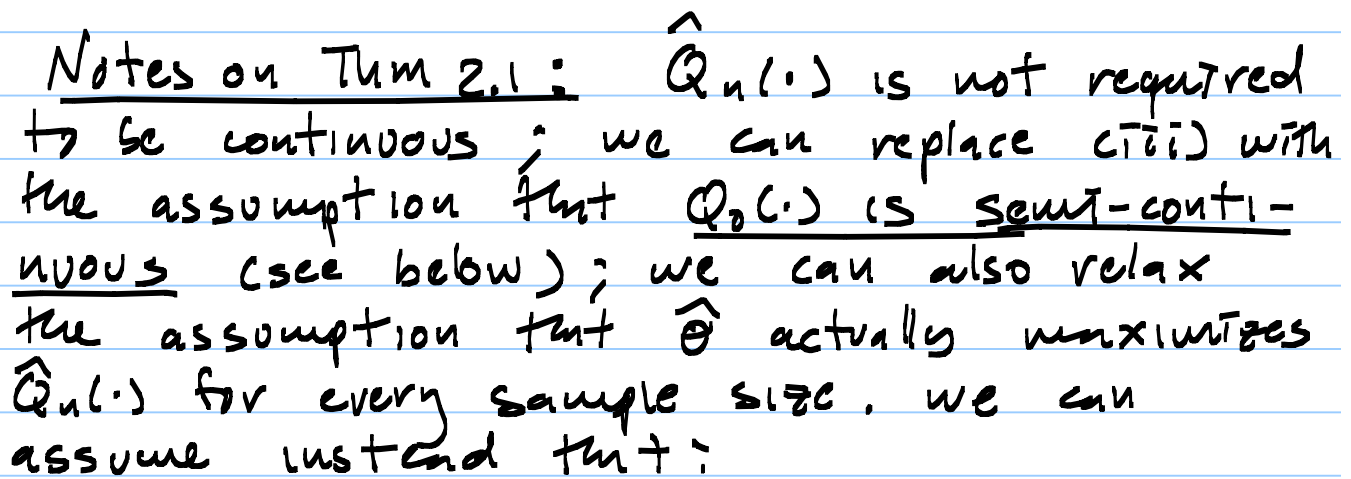 Notes on Thm 2.1: Q̂n(·) is not required
to be continuous; we can replace (iii) with
the assumption that Q₀(·) is semi-conti-
nuous (see below); we can also relax
the assumption that θ̂ actually maximizes
Q̂n(·) for every sample size. we can
assume instead that: